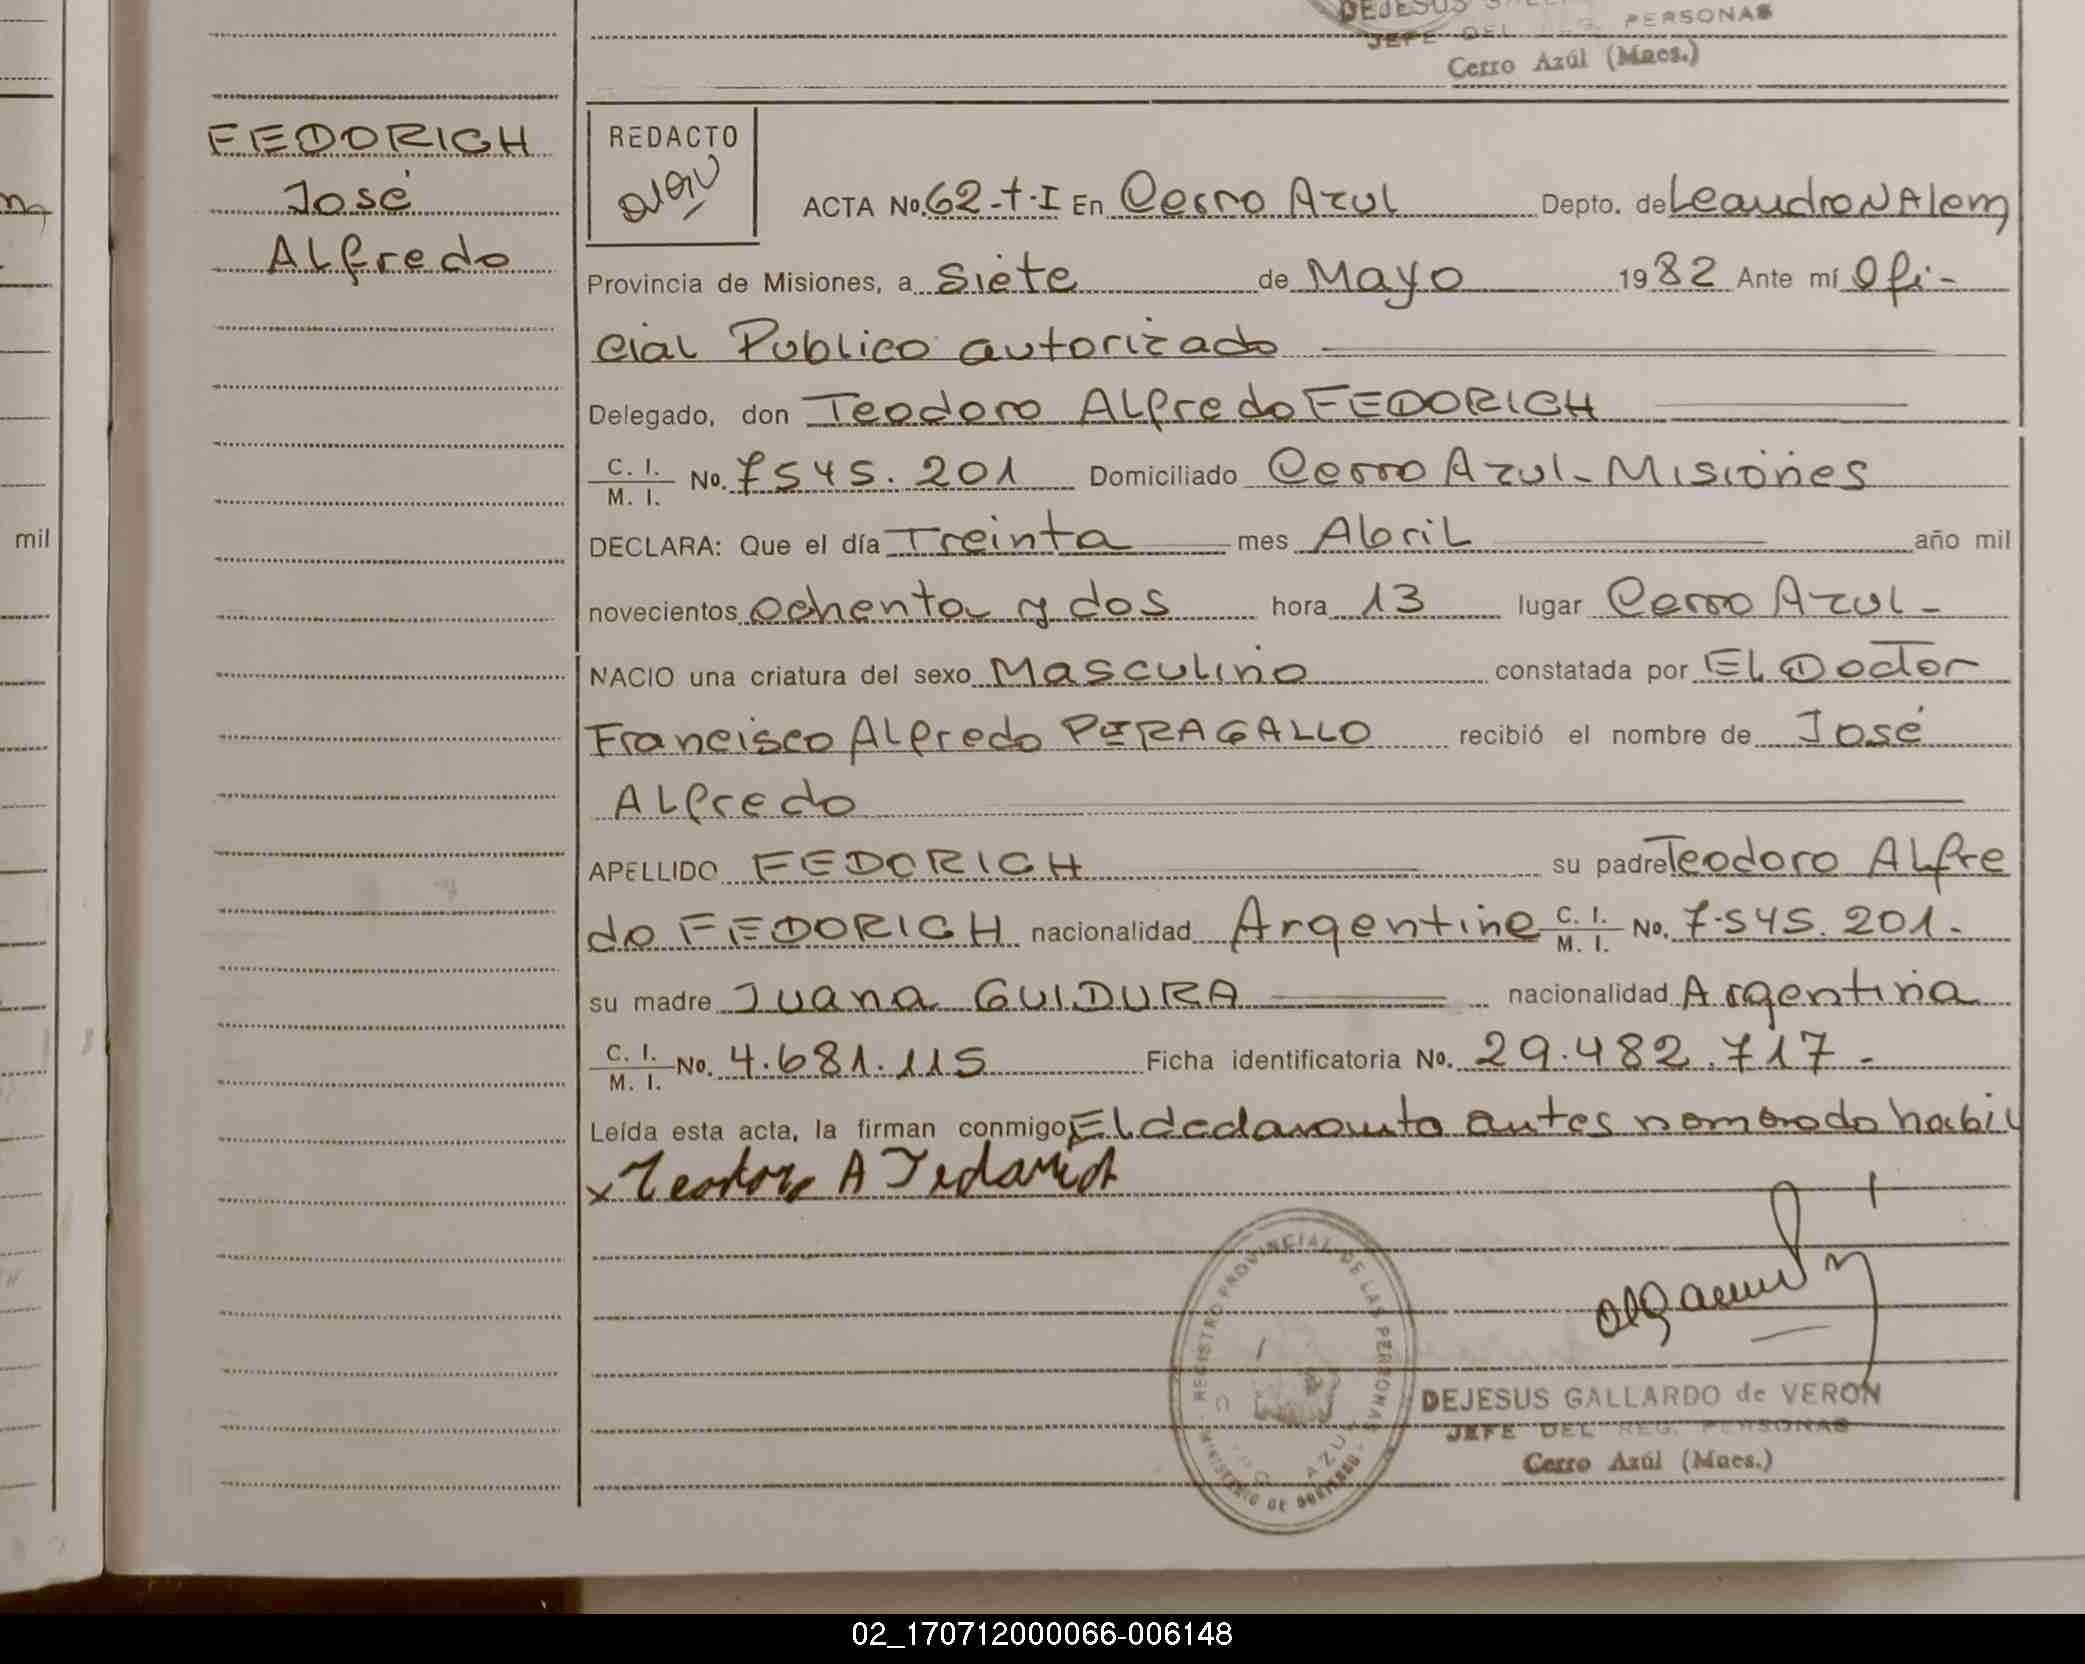 DEJESUS
JEFE DEL REG. PERSONAS
Cerro Azúl (Mnes.)
FEDORICH
José
Alfredo
REDACTO
ACTA No. 62-t-I En Cerro Azul Depto. de Leandro N Alem
Provincia de Misiones, a siete de Mayo 1982 Ante mí Ofi-
cial Publico autorizado
Delegado, don Teodoro Alfredo FEDORICH
C. I. / M. I. No. 7545.201 Domiciliado Cerro Azul - Misiones
DECLARA: Que el día Treinta mes Abril año mil
novecientos ochenta y dos hora 13 lugar Cerro Azul-
NACIO una criatura del sexo Masculino constatada por El Doctor
Francisco Alfredo PERAGALLO recibió el nombre de José
Alfredo
APELLIDO FEDORICH su padre Teodoro Alfre
do FEDORICH nacionalidad Argentine C. I. / M. I. No. 7.545.201.
su madre Juana GUIDURA nacionalidad Argentina
C. I. / M. I. No. 4.681.115 Ficha identificatoria No. 29.482.717-
Leída esta acta, la firman conmigo El declarante antes nombrado habil
x Teodoro A Fedorich
REGISTRO PROVINCIAL DE LAS PERSONAS
MINISTERIO DE GOBIERNO
AZUL
DEJESUS GALLARDO de VERON
JEFE DEL REG. PERSONAS
Cerro Azúl (Mnes.)
mil
02_170712000066-006148